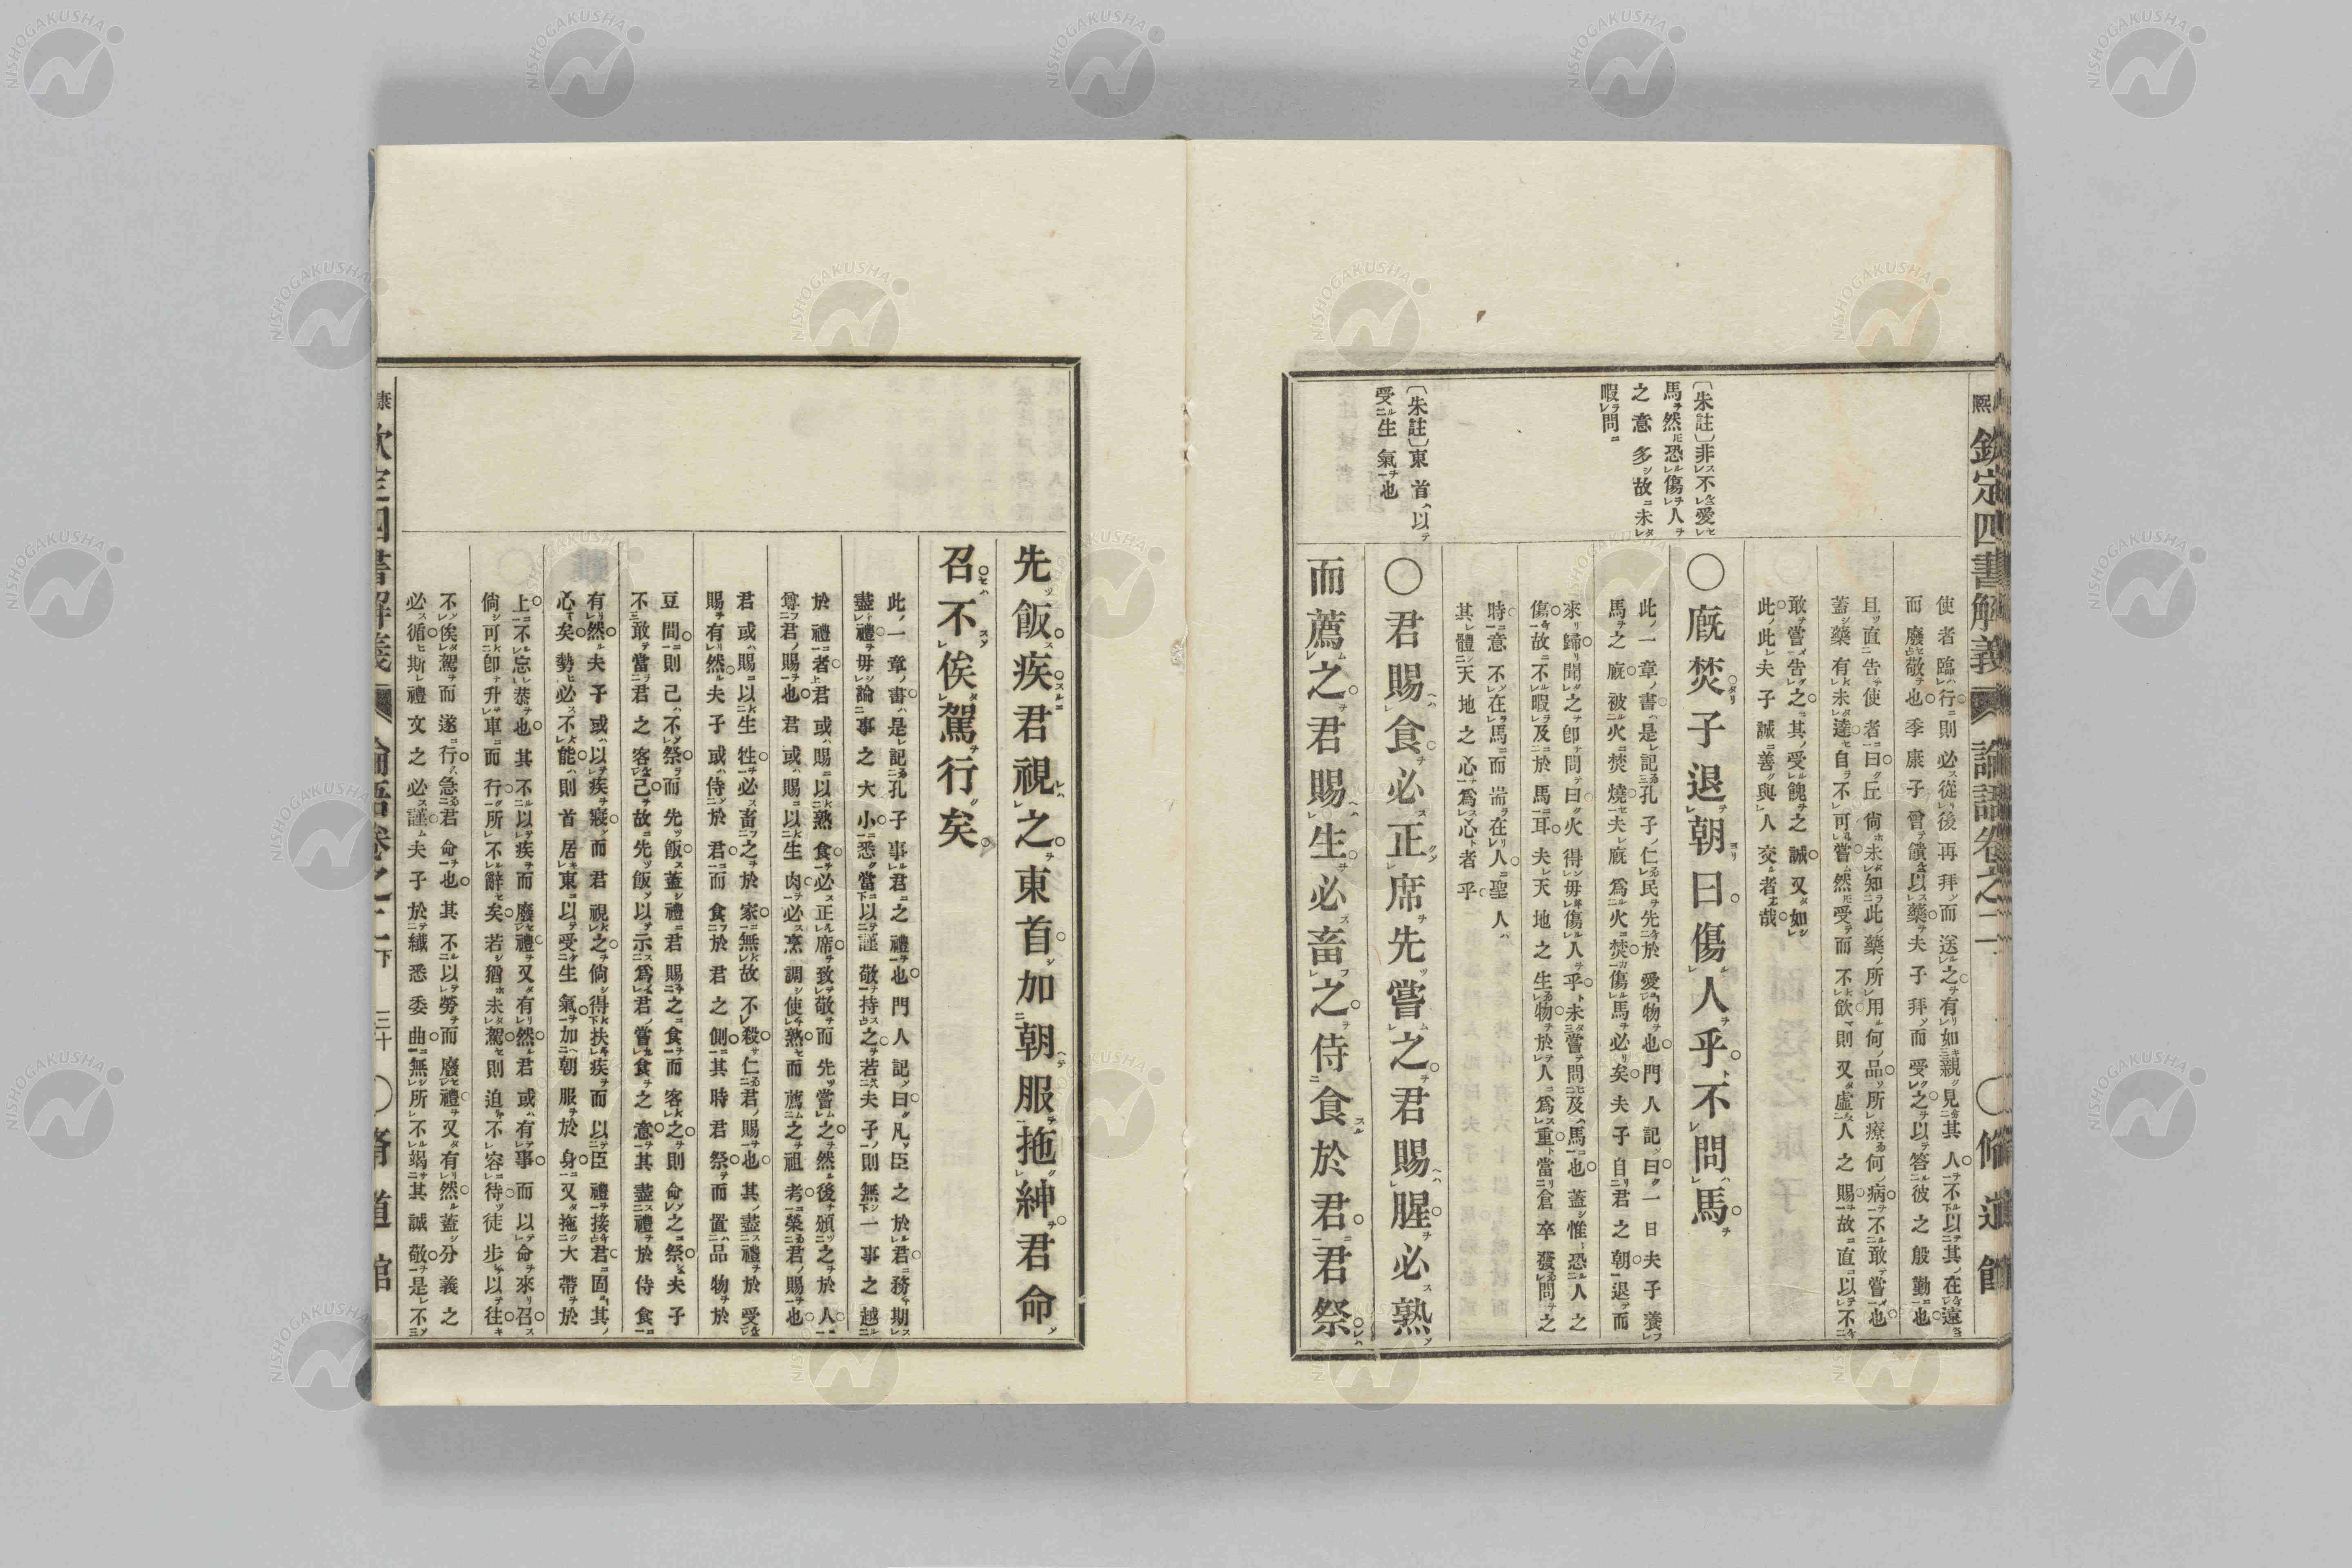 熙
欽定四書解義
論語卷之二
〇脩道館
使者臨行則必從後再拜而送之有如親見其人不以其在遠
而廢敬也季康子曾饋以藥夫子拜而受之以答彼之殷勤也
且直告使者曰丘尙未知此藥所用何品所療何病不敢嘗也
蓋藥有未達自不可嘗然受而不飮則又虛人之賜故直以不
敢嘗告之其受餽之誠又如
此此夫子誠善與人交者哉
〇廐焚子退朝曰傷人乎不問馬
〔朱註〕非不愛
馬然恐傷人
之意多故未
暇問
此一章書是記孔子仁民先於愛物也門人記曰一日夫子養
馬之廐被火焚燒夫廐爲火焚傷馬必矣夫子自君之朝退而
來歸聞之卽問曰火得毋傷人乎未嘗問及馬也蓋惟恐人之
傷故不暇及於馬耳夫天地之生物於人爲重當倉卒發問之
時意不在馬而耑在人聖人
其體天地之心爲心者乎
〇君賜食必正席先嘗之君賜腥必熟
而薦之君賜生必畜之侍食於君君祭
〔朱註〕東首以
受生氣也
先飯疾君視之東首加朝服拖紳君命
召不俟駕行矣
此一章書是記孔子事君之禮也門人記曰凡臣之於君務期
盡禮毋論事之大小悉當以謹敬持之若夫子則無一事之越
於禮者君或賜以熟食必正席致敬而先嘗之然後頒之於人
尊君賜也君或賜以生肉必烹調使熟而薦之祖考榮君賜也
君或賜以生牲必畜之於家無故不殺仁君賜也其盡禮於受
賜有然夫子或侍於君而食於君之側其時君祭而置品物於
豆間則己不祭而先飯蓋禮君賜之食而客之則命之祭夫子
不敢當君之客己故先飯以示爲君嘗食之意其盡禮於侍食
有然夫子或以疾寢而君視之倘得扶疾而以臣禮接君固其
心矣勢必不能則首居東以受生氣加朝服於身又拖大帶於
上不忘恭也其不以疾而廢禮又有然君或有事而以命來召
倘可卽升車而行所不辭矣若猶未駕則迫不容待徒步以往
不俟駕而遂行急君命也其不以勞而廢禮又有然蓋分義之
必循斯禮文之必謹夫子於纎悉委曲無所不竭其誠敬是不
康
欽定四書解義
論語卷之二下
三十
〇脩道館